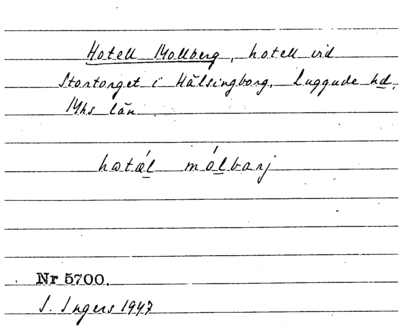 Hotell Mollberg, hotell vid
Stortorget i Hälsingborg, Luggude hd,
Mhs län
hotä́l mólbarj
Nr 5700.
I. Ingers 1947